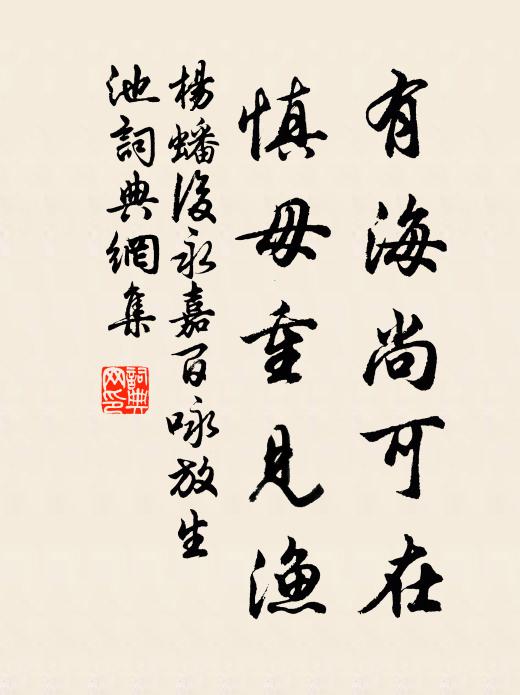 有海尚可在
慎毋重見漁
楊蟠後永嘉百咏放生
池詞典網集
詞典網印